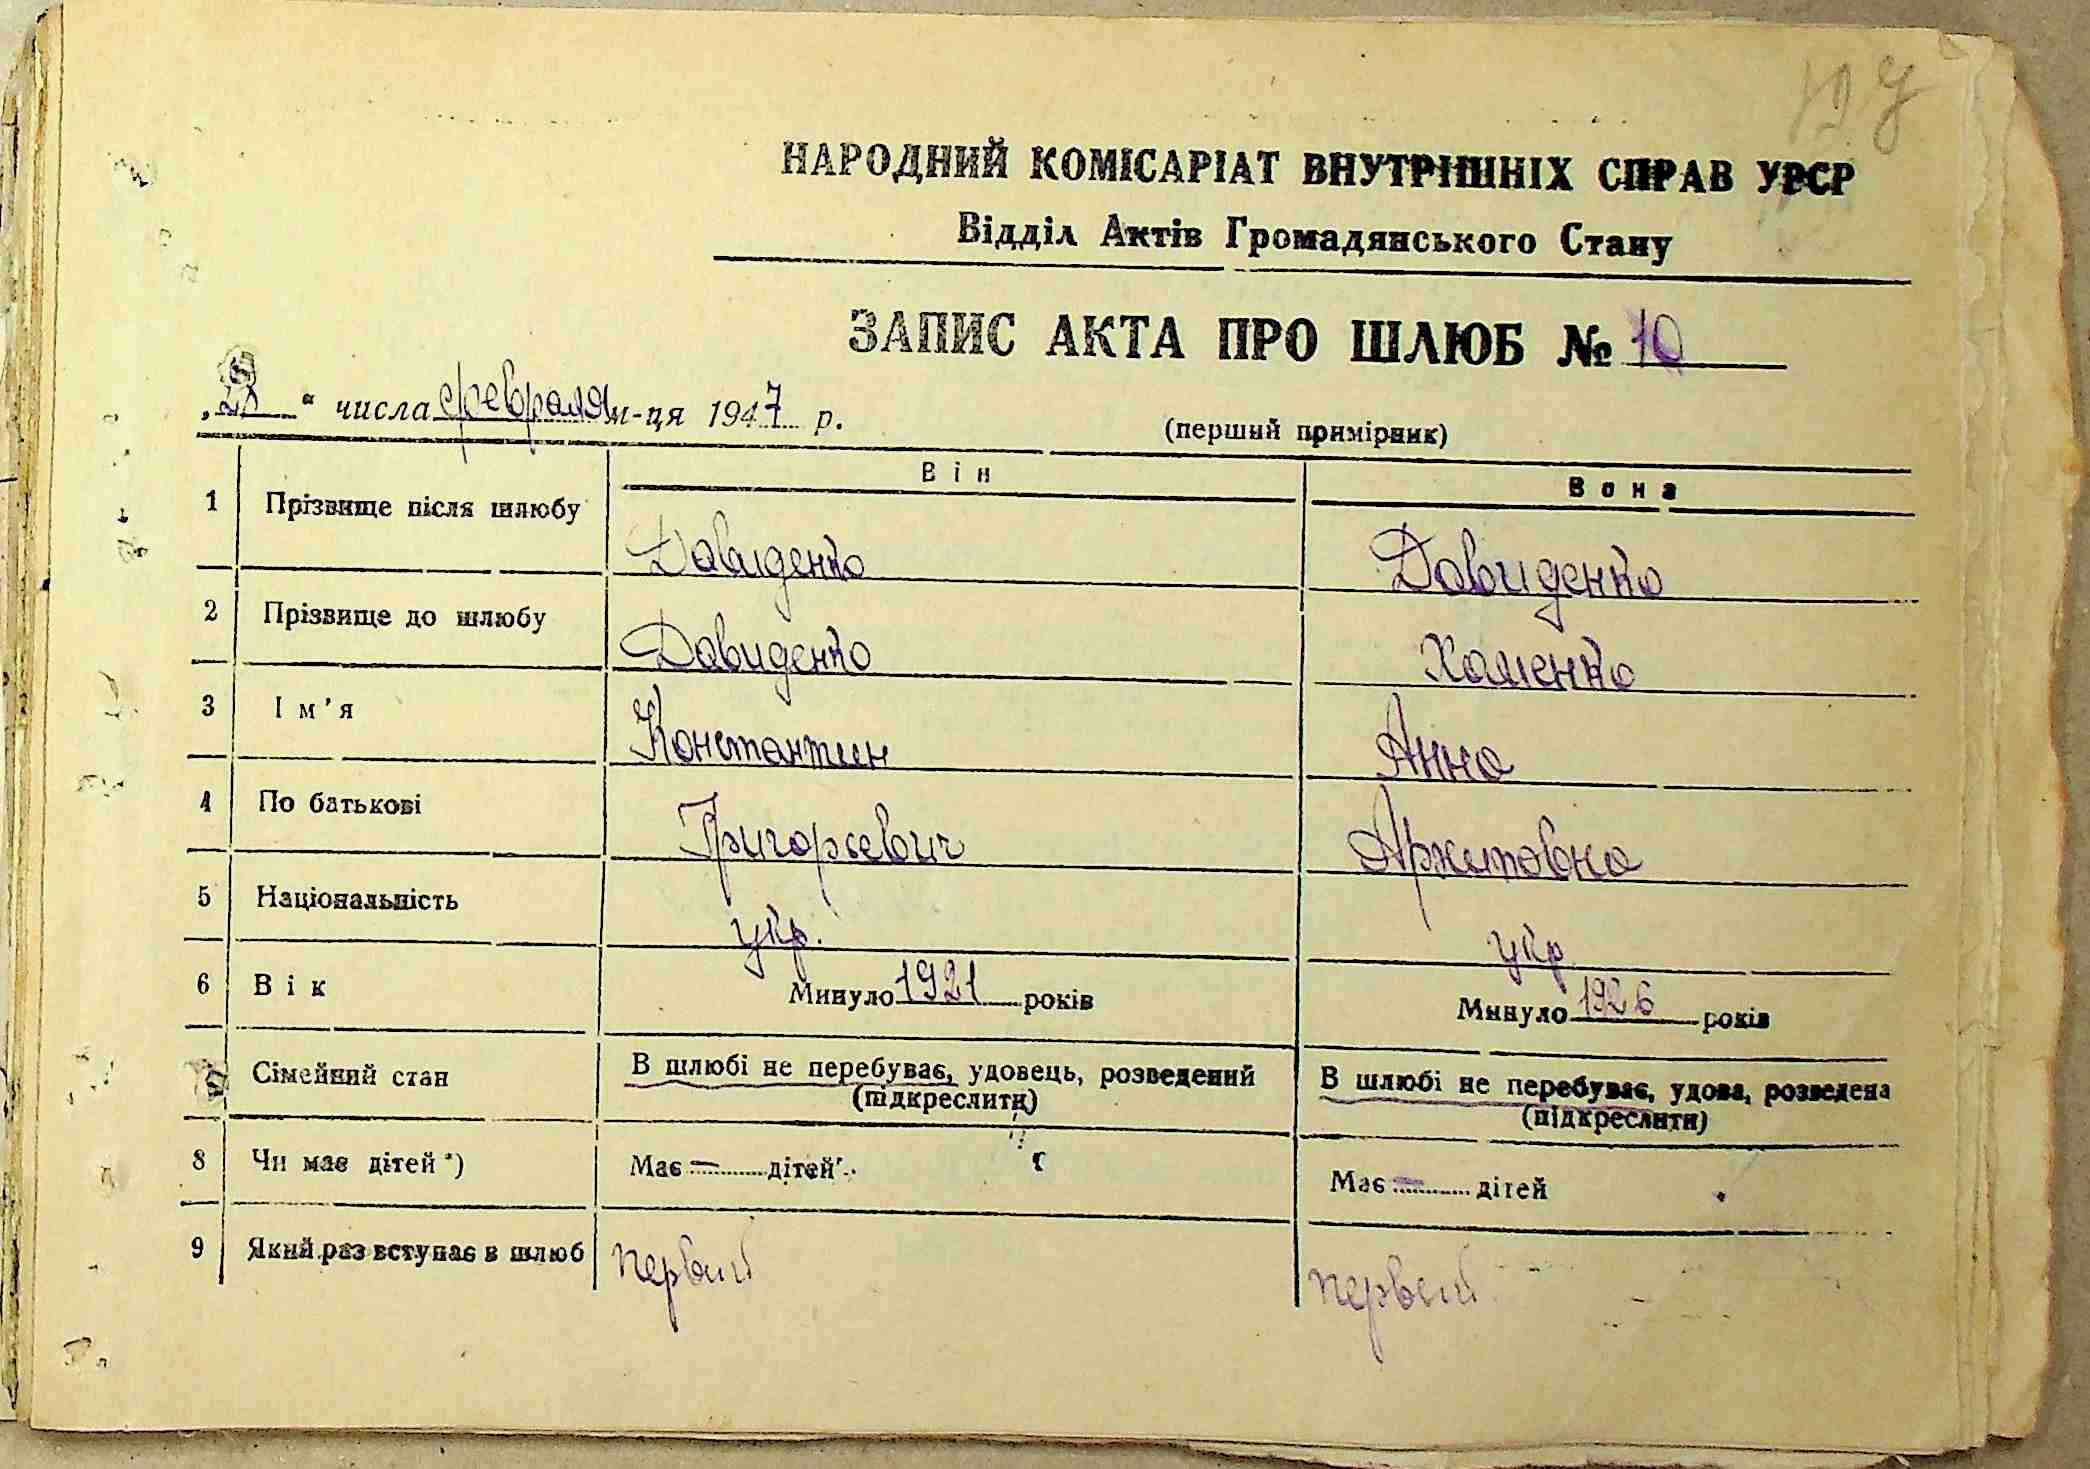 НАРОДНИЙ КОМІСАРІАТ ВНУТРІШНІХ СПРАВ УРСР
Відділ Актів Громадянського Стану
ЗАПИС АКТА ПРО ШЛЮБ № 10
„28“ числа февраля м-ця 1947 р.
(перший примірник)
Він Вона
1 Прізвище після шлюбу Давиденко Давиденко
2 Прізвище до шлюбу Давиденко Хоменко
3 Ім'я Константин Анна
4 По батькові Григорьевич Архиповна
5 Національність укр. укр
6 Вік Минуло 1921 років Минуло 1926 років
Сімейний стан В шлюбі не перебуває, удовець, розведений В шлюбі не перебуває, удова, розведена
(підкреслити) (підкреслити)
8 Чи має дітей *) Має — дітей Має — дітей
9 Який раз вступає в шлюб первий первий